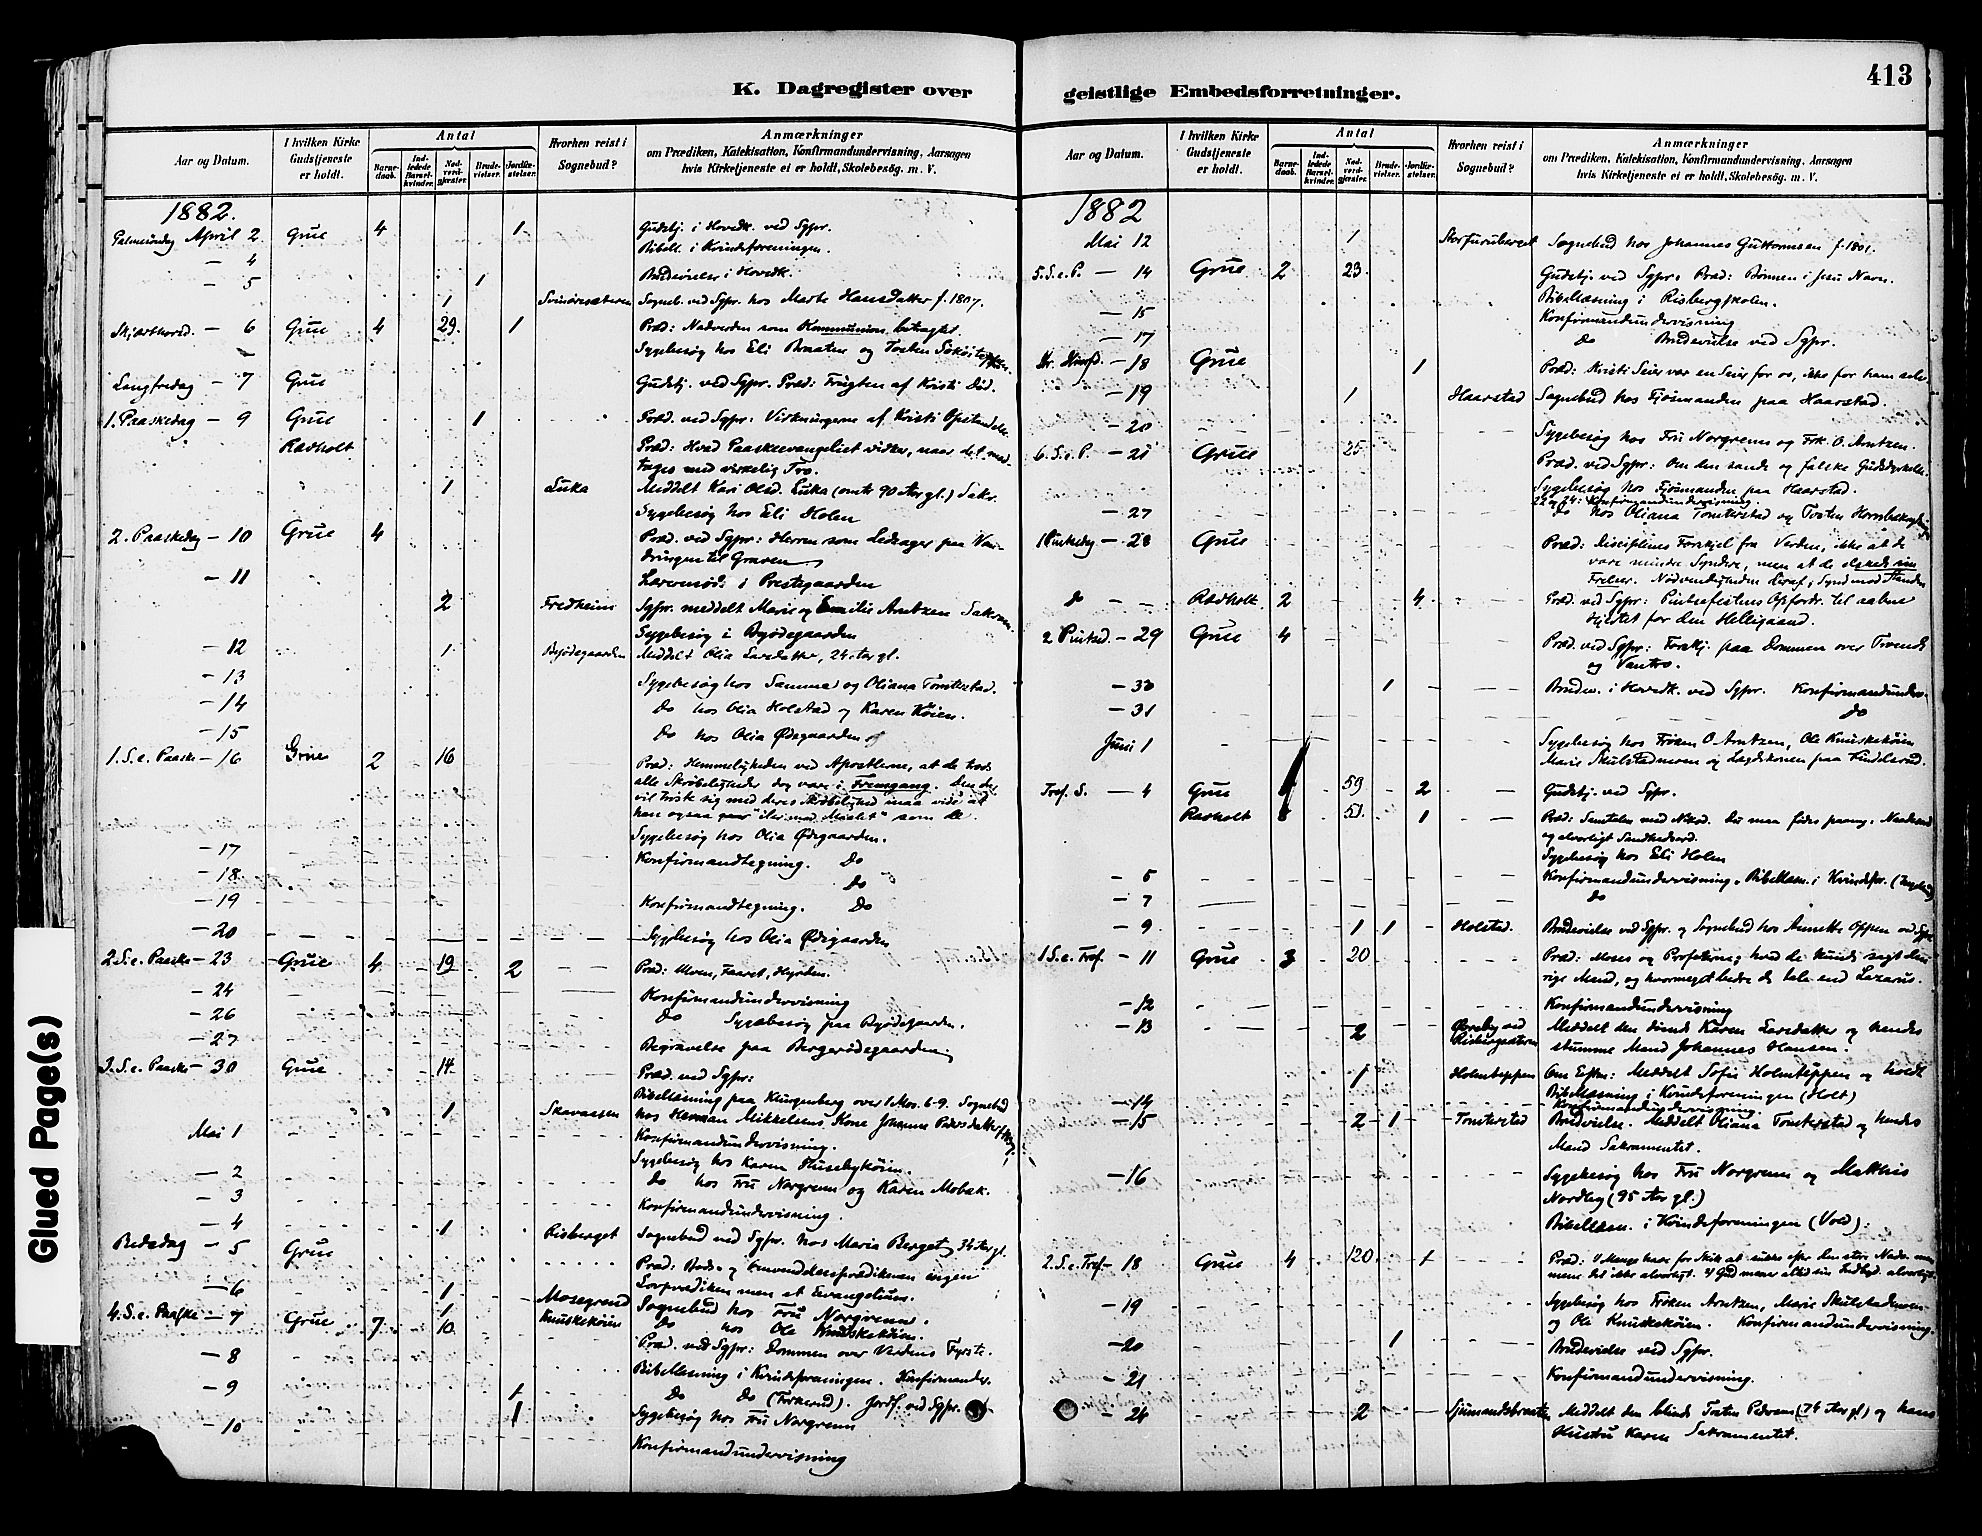 413
K. Dagregister over
geistlige Embedsforretninger.
Aar og Datum.
I hvilken Kirke Gudstjeneste er holdt.
Antal
Barnedaab.
Indledede Barselkvinder.
Nadverdgjæster.
Brudevielser.
Jordfæstelser.
Hvorhen reist i Sognebud?
Anmærkninger
om Prædiken, Katekisation, Konfirmandundervisning, Aarsagen
hvis Kirketjeneste ei er holdt, Skolebesøg. m. V.
1882.
Palmesøndag April 2 Grue 4 1 Gudstj. i Hovedk. ved Sgpr.
- 4 Bibell. i Kvindeforeningen.
- 5 1 Brudevielse i Hovedk.
1 Sogneb. ved Sgpr. hos Marte Hansdatter f. 1807.
Skjærthorsd. - 6 Grue 4 29 1 Præd: Nadverden som Kommunion betragtet.
Sygebesøg hos Eli Braaten og Torsten
Langfredag - 7 Grue Gudstj. ved Sgpr. Præd: Frugten af Kristi Død.
1. Paaskedag - 9 Grue 1 Præd. ved Sgpr. Virkningerne af Kristi Opstandelse
Radholt Præd: Hvad Paaskeevangeliet virker, naar det mod-
tages med virkelig Tro.
1 Luka Meddelt Kari Olsd. Luka (omtr 90 Aar gl.) Sakr.
Sygebesøg hos Eli Holen
2. Paaskedag - 10 Grue 4 Præd. ved Sgpr: Herren som Ledsager paa Van-
dringen til Graven
- 11 Lærermøde i Prestegaarden
2 Fredheim Sgpr. meddelt Marie og Emilie Arntzen Sakram.
Sygebesøg i Byødegaarden
- 12 1 Byødegaarden Meddelt Olia Larsdatter, 24 Aar gl.
- 13 Sygebesøg hos Samme og Oliana Tomterstad.
- 14 Do hos Olia Holstad og Karen Køien.
- 15 Do hos Olia Ødegaarden
1. S. e. Paaske - 16 Grue 2 16 Præd: Hemmeligheden ved Apostlerne, at de trods
alle Skrøbeligheder dog vare i Fremgang. Den der
vil trøste sig med deres Skrøbelighed maa vide at
han ogsaa gaar "iler mod Maalet" som de.
Sygebesøg hos Olia Ødegaarden.
- 17 Konfirmandtegning. Do
- 18 Do
- 19 Konfirmandtegning. Do
- 20 Sygebesøg hos Olia Ødegaarden
2. S. e. Paaske - 23 Grue 4 19 2 Præd: Ulven, Faaret, Hyrden.
- 24 Konfirmandundervisning
- 26 Do Sygebesøg paa Byødegaarden.
- 27 Begravelse paa Bergerødegaarden
3. S. e. Paaske - 30 Grue 14 Præd. ved Sgpr:
Bibellæsning paa Klingenberg over 1 Mos. 6-9. Sognebud
1 Skavaasen hos Herman Mikkelsens Kone Johanne Pedersdatter
Mai 1 Konfirmandundervisning.
Sygebesøg hos Karen Husebykøien.
- 2 Do hos Fru Norgrenn og Karen Mobæk.
- 3 Konfirmandundervisning.
- 4 1 Risberget Sognebud ved Sgpr. hos Maria Berget, 34 Aar gl.
Bededag - 5 Grue Præd: Bods- og Omvendelsesprædikenen ingen
Lovprædiken men et Evangelium.
- 6 1 Mosegrend Sognebud hos Fru Norgrenn.
4. S. e. Paaske - 7 Grue 7 1 10 Knuskekøien Do hos Ole Knuskekøien.
Præd. ved Sgpr: Dommen over Verdens Fyrste.
- 8 Bibellæsning i Kvindeforeningen. Konfirmander.
- 9 1 Do Do (Forkerud). Jordf. ved Sgpr.
1 Sygebesøg hos Fru Norgrenn
- 10 Konfirmandundervisning
Aar og Datum.
I hvilken Kirke Gudstjeneste er holdt.
Antal
Barnedaab.
Indledede Barselkvinder.
Nadverdgjæster.
Brudevielser.
Jordfæstelser.
Hvorhen reist i Sognebud?
Anmærkninger
om Prædiken, Katekisation, Konfirmandundervisning, Aarsagen
hvis Kirketjeneste ei er holdt, Skolebesøg. m. V.
1882
Mai 12 1 Storfuruberget Sognebud hos Johannes Guttormsen f. 1801.
5. S. e. P. - 14 Grue 2 23 Gudstj. ved Sgpr. Præd: Bønnen i Jesu Navn.
Bibellæsning i Risbergskolen.
- 15 Konfirmandundervisning
- 17 Do Brudevielse ved Sgpr.
Kr. Himf. - 18 Grue 1 Præd: Kristi Seier var en Seier for os, ikke for ham selv
- 19 1 Haarstad Sognebud hos Fjøsmanden paa Haarstad.
- 20 Sygebesøg hos Fru Norgrenn og Frk. O. Arntzen
6. S. e. P. - 21 Grue 25 Præd. ved Sgpr: Om den sande og falske Gudsdyrkelse.
Sygebesøg hos Fjøsmanden paa Haarstad.
22 og 24: Konfirmandundervisning
- 27 Do hos Oliana Tomterstad og Torsten
1 Pintsedag - 28 Grue Præd: Disciplenes Forskjel fra Verden, ikke at de
vare mindre Syndere, men at de elskede sin
Frelser. Nødvendigheden deraf, Synd mod
Do - - Radholt 2 4 Præd. ved Sgpr: Pintsefestens Opfordr. til aabne
Hjertet for den Helligaand.
2 Pintsed. - 29 Grue 4 Præd. ved Sgpr: Forskj. paa Dommen over Troende
og Vantro.
- 30 1 Brudev. i Hovedk. ved Sgpr. Konfirmandunder.
- 31 Do
Juni 1 Sygebesøg hos Frøken O Arntzen, Ole Knuskekøien
Marie Skulstadmoen og Lægdskonen paa
Tref. S. - 4 Grue 59 2 Gudstj. ved Sgpr.
Radholt 51 1 Præd: Samtalen med Nikod. Du maa fødes paany.
og alvorligt Sandhedsord.
Sygebesøg hos Eli Holen
- 5 Konfirmandundervisning. Bibellæsn. i Kvindefor.
- 7 Do
- 9 1 1 Holstad. Brudevielse ved Sgpr. og Sognebud hos Annette Oppen ved Sgpr
1 S. e. Tref. - 11 Grue 3 20 Præd: Moses og Profeterne; hvad de kunde sagt den
rige Mand, og hvormeget bedre de tale end Lazarus.
- 12 Konfirmandundervisning
- 13 2 Øvreby ved Risbergsæteren Meddelt den døende Karen Larsdatter og hendes
stumme Mand Johannes Hansen.
1 Holmteppen Om Eftm: Meddelt Sofie Holmteppen og holdt
- 14 Bibellæsning i Kvindeforeningen (Holt)
Konfirmandundervisning.
- 15 2 1 Tomterstad Brudevielse. Meddelt Oliana Tomterstad og hendes
Mand Sakramentet.
- 16 Sygebesøg hos Fru Norgrenn og Matthis
Nordby (95 Aar gl.)
Bibellæsn. i Kvindeforeningen (Vold).
2. S. e. Tref - 18 Grue 4 120 1 Præd: 1) Mange have for Skik at sukke efter den store Nadv. men
mene det ikke alvorligt. 2) Gud mener altid sin Indbyd. alvorligt.
- 19 Sygebesøg hos Frøken Arntzen, Marie Skulstadmoen
og Ole Knuskekøien. Konfirmandundervisning.
- 20 1 Brudevielse ved Sgpr.
- 21 Konfirmandundervisning.
- 24 2 Sjømandsbraaten Meddelt den blinde Torsten Pedersen (74 Aar gl.) og hans
Hustru Karen Sakramentet.
Glued Page(s)